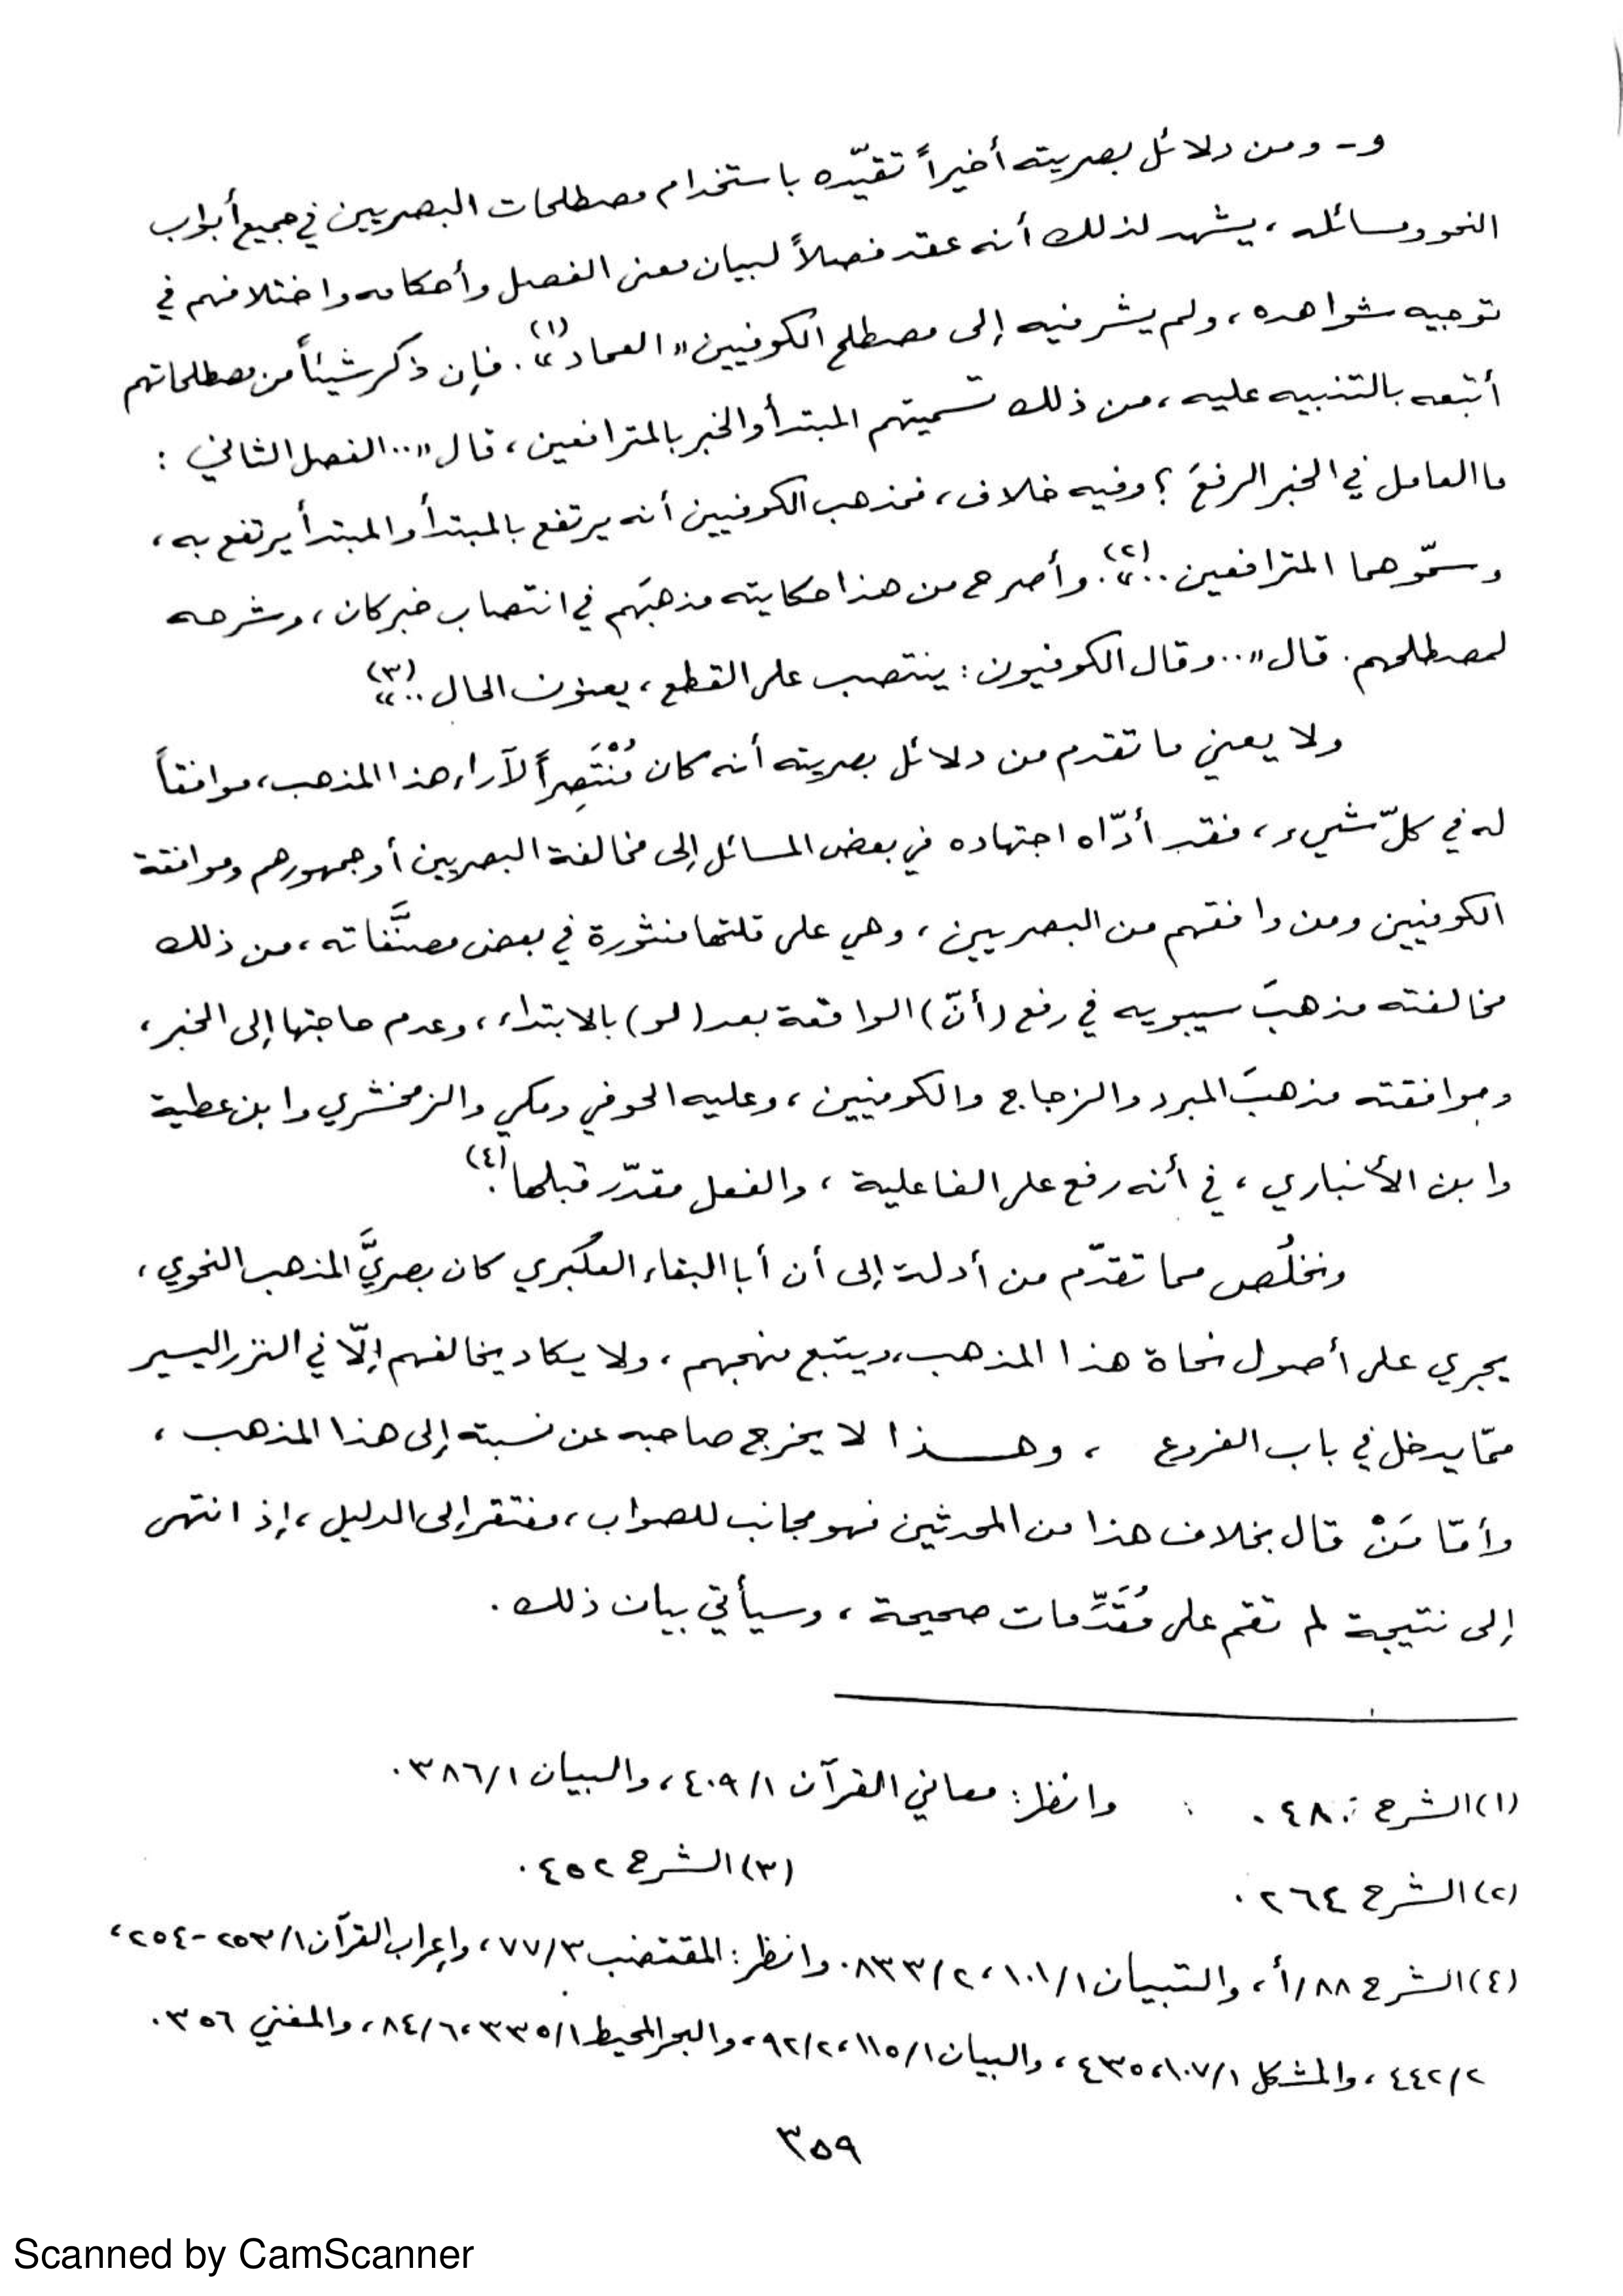 و- ومن دلائل بصريته أخيراً تقيّده باستخدام مصطلحات البصريين في جميع أبواب
النحو ومسائله ، يشهد لذلك أنه عقد فصلاً لبيان معنى الفصل وأحكامه واختلافهم في
توجيه شواهده ، ولم يشر فيه إلى مصطلح الكوفيين « العماد »(١) . فإن ذكر شيئاً من مصطلحاتهم
أتبعه بالتنبيه عليه ، من ذلك تسميتهم المبتدأ والخبر بالمترافعين ، قال «.. الفصل الثاني :
ما العامل في الخبر الرفعَ ؟ وفيه خلاف ، فمذهب الكوفيين أنه يرتفع بالمبتدأ والمبتدأ يرتفع به ،
وسمّوهما المترافعين ..»(٢) . وأصرح من هذا حكايته مذهبَهم في انتصاب خبر كان ، وشرحه
لمصطلحهم . قال «.. وقال الكوفيون : ينتصب على القطع ، يعنون الحال ..»(٣)
ولا يعني ما تقدم من دلائل بصريته أنه كان مُنْتَصِراً لآراء هذا المذهب ، موافقاً
له في كلّ شيء ، فقد أدّاه اجتهاده في بعض المسائل إلى مخالفة البصريين أو جمهورهم وموافقة
الكوفيين ومن وافقهم من البصريين ، وهي على قلتها منثورة في بعض مصنَّفاته ، من ذلك
مخالفته مذهبَ سيبويه في رفع (أنّ) الواقعة بعد (لو) بالابتداء ، وعدم حاجتها إلى الخبر ،
وموافقته مذهبَ المبرد والزجاج والكوفيين ، وعليه الحوفي ومكي والزمخشري وابن عطية
وابن الأنباري ، في أنه رفع على الفاعلية ، والفعل مقدّر قبلها(٤) .
ونخلُص مما تقدّم من أدلة إلى أن أبا البقاء العُكبري كان بصريَّ المذهب النحوي ،
يجري على أصول نحاة هذا المذهب ، ويتبع منهجهم ، ولا يكاد يخالفهم إلّا في النزر اليسير
ممّا يدخل في باب الفروع ، وهـــذا لا يخرج صاحبه عن نسبته إلى هذا المذهب ،
وأمّا مَنْ قال بخلاف هذا من المحدثين فهو مجانب للصواب ، مفتقر إلى الدليل ، إذ انتهى
إلى نتيجة لم تقم على مُقَدِّمات صحيحة ، وسيأتي بيان ذلك .
(١) الشرح ٤٨٠ . وانظر : معاني القرآن ٤٠٩/١ ، والبيان ٣٨٦/١ .
(٢) الشرح ٢٦٤ . (٣) الشرح ٤٥٢ .
(٤) الشرح ٨٨/أ ، والتبيان ١٠١/١ ، ٨٣٣/٢ . وانظر : المقتضب ٧٧/٣ ، وإعراب القرآن ٢٥٣/١-٢٥٤ ،
٤٤٢/٢ ، والمشكل ١٠٧/١ ، ٤٣٥ ، والبيان ١١٥/١ ، ٩٢/٢ ، والبحر المحيط ٣٣٥/١ ، ٨٤/٦ ، والمغني ٣٥٦ .
٣٥٩
Scanned by CamScanner